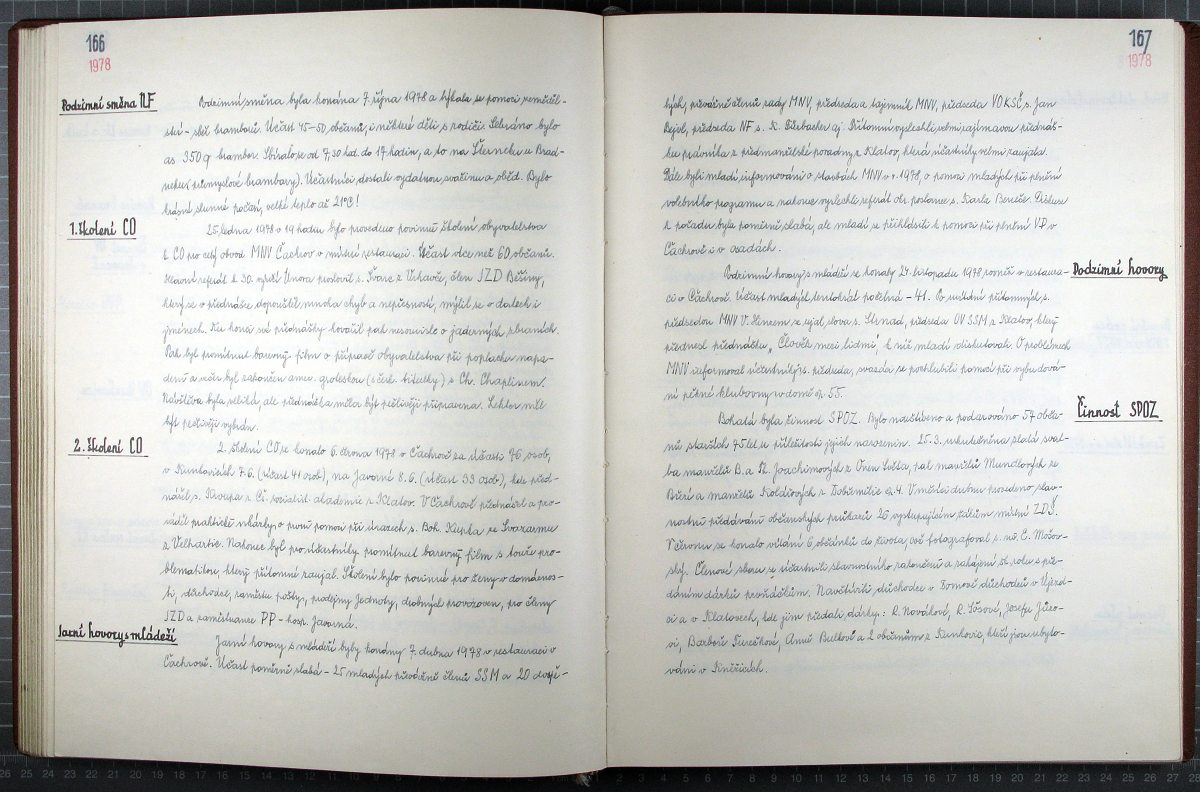 166
1978
Podzimní směna NF
Podzimní směna byla konána 7. října 1978 a týkala se pomoci zeměděl-
ství - sběr bramborů. Účast 45-50 občanů, i některé děti s rodiči. Sebráno bylo
as 350 q brambor. Sbíralo se od 7,30 hod. do 17 hodin, a to na Šterneku u Brad-
neku (průmyslové brambory). Účastníci dostali vydatnou svačinu a oběd. Bylo
krásné slunné počasí, velké teplo až 21°C!
1. školení CO
25. ledna 1978 v 19 hodin bylo provedeno povinné školení obyvatelstva
k CO pro celý obvod MNV Čachrov v místní restauraci. Účast více než 60 občanů.
Hlavní referát k 30. výročí Února proslovil s. Švarc z Vrhavče, člen JZD Běšiny,
který se v přednášce dopouštěl mnoha chyb a nepřesností, mýlil se v datech i
jménech. Ku konci své přednášky hovořil pak nesouvisle o jaderných zbraních.
Pak byl promítnut barevný film o přípravě obyvatelstva při poplachu napa-
dení a večer byl zakončen amer. groteskou (s česk. titulky) s Ch. Chaplinem.
Návštěva byla veliká, ale přednáška měla být pečlivěji připravena. Lektor měl
být pečlivěji vybrán.
2. školení CO
2. školení CO se konalo 6. června 1978 v Čachrově za účasti 76 osob,
v Kunkovicích 7.6. (účast 41 osob), na Javorné 8.6. (účast 33 osob), kde před-
nášel s. Kroupa z Čs. socialist. akademie z Klatov. V Čachrově přednášel a pro-
váděl praktické ukázky o první pomoci při úrazech s. Boh. Kupka ze Svazarmu
z Velhartic. Nakonec byl pro účastníky promítnut barevný film s touže pro-
blematikou, který přítomné zaujal. Školení bylo povinné pro ženy v domácnos-
ti, důchodce, zaměstn. pošty, prodejny Jednoty, drobných provozoven, pro členy
JZD a zaměstnance PP - hosp. Javorná.
Jarní hovory s mládeží
Jarní hovory s mládeží byly konány 7. dubna 1978 v restauraci v
Čachrově. Účast poměrně slabá - 25 mladých převážně členů SSM a 20 dospě-
167
1978
lých, převážně členů rady MNV, předseda a tajemník MNV, předseda VO KSČ s. Jan
předseda NF s. K. aj. Přítomní vyslechli velmi zajímavou přednáš-
ku právníka z předmanželské poradny z Klatov, která účastníky velmi zaujala.
Dále byli mladí informováni o stavbách MNV v r. 1978, o pomoci mladých při plnění
volebního programu a nakonec vyslechli referát okr. poslance s. Karla Beneše. Diskuse
k pořadu byla poměrně slabá, ale mladí se přihlásili k pomoci při plnění VP v
Čachrově i v osadách.
Podzimní hovory
Podzimní hovory s mládeží se konaly 24. listopadu 1978 rovněž v restaura-
ci v Čachrově. Účast mladých tentokrát početná - 41. Po uvítání přítomných s.
předsedou MNV V. se ujal slova s. Strnad, předseda OV SSM z Klatov, který
přednesl přednášku "Člověk mezi lidmi", k níž mladí diskutovali. O problémech
MNV informoval účastníky s. předseda, svazáci se pochlubili pomocí při vybudová-
ní pěkné klubovny v domě čp. 55.
Činnost SPOZ
Bohatá byla činnost SPOZ. Bylo navštíveno a podarováno 57 obča-
nů starších 75 let u příležitosti jejich narozenin. 25.3. uskutečněna zlatá svat-
ba manželů B. a Št. Joachimových z Onen Světa, pak manželů Mundlových ze
Březí a manželů Koldínových z Dobřemilic čp. 4. V měsíci dubnu provedeno slav-
nostní předávání občanských průkazů 26 vystupujícím žákům místní ZDŠ.
V červnu se konalo vítání 6 občánků do života, což fotografoval s. uč. E.
Členové sboru se účastnili slavnostního zakončení a zahájení šk. roku s pře-
dáním dárků prvňáčkům. Navštívili důchodce v Domově důchodců v Újezd-
ci a v Klatovech, kde jim předali dárky: R. Novákové, R. Josefu
Barboře Turečkové, Anně Bulkové a 2 občanům z Kunkovic, kteří jsou ubyto-
váni v Kněžicích.